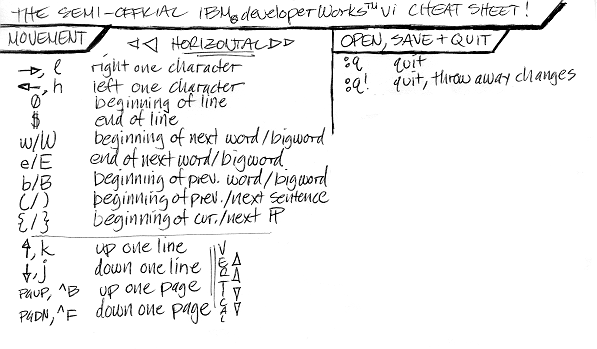 THE SEMI-OFFICIAL IBM® developerWorks™ vi CHEAT SHEET!
MOVEMENT
◁◁ HORIZONTAL ▷▷
→, l right one character
←, h left one character
0 beginning of line
$ end of line
w/W beginning of next word/bigword
e/E end of next word/bigword
b/B beginning of prev. word/bigword
(/) beginning of prev./next sentence
{/} beginning of cur./next PP
↑, k up one line
↓, j down one line
PGUP, ^B up one page
PGDN, ^F down one page
VERTICAL
△△▽▽
OPEN, SAVE + QUIT
:q quit
:q! quit, throw away changes